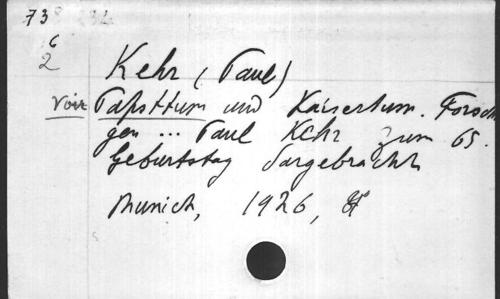 73
6
2
Kehr (Paul)
voir Papsttum und Kaisertum. Forsch
gen ... Paul Kehr zum 65.
Geburtstag dargebracht
Munich, 1926, 8º